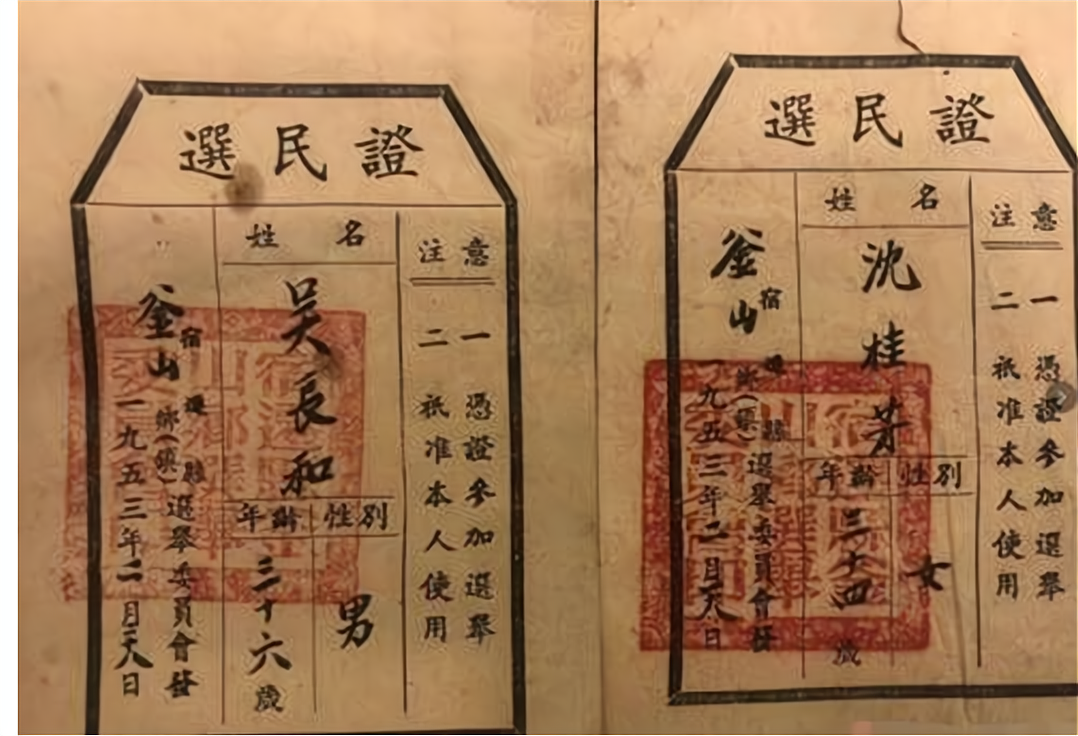 選民證
注意
一 憑證參加選舉
二 祇准本人使用
姓名
吳長和
性別
男
年齡
三十六歲
宿遷縣
釜山鄉(鎮)選舉委員會發
一九五三年二月日
選民證
注意
一 憑證參加選舉
二 祇准本人使用
姓名
沈桂芳
性別
女
年齡
三十四歲
宿遷縣
釜山鄉(鎮)選舉委員會發
一九五三年二月日